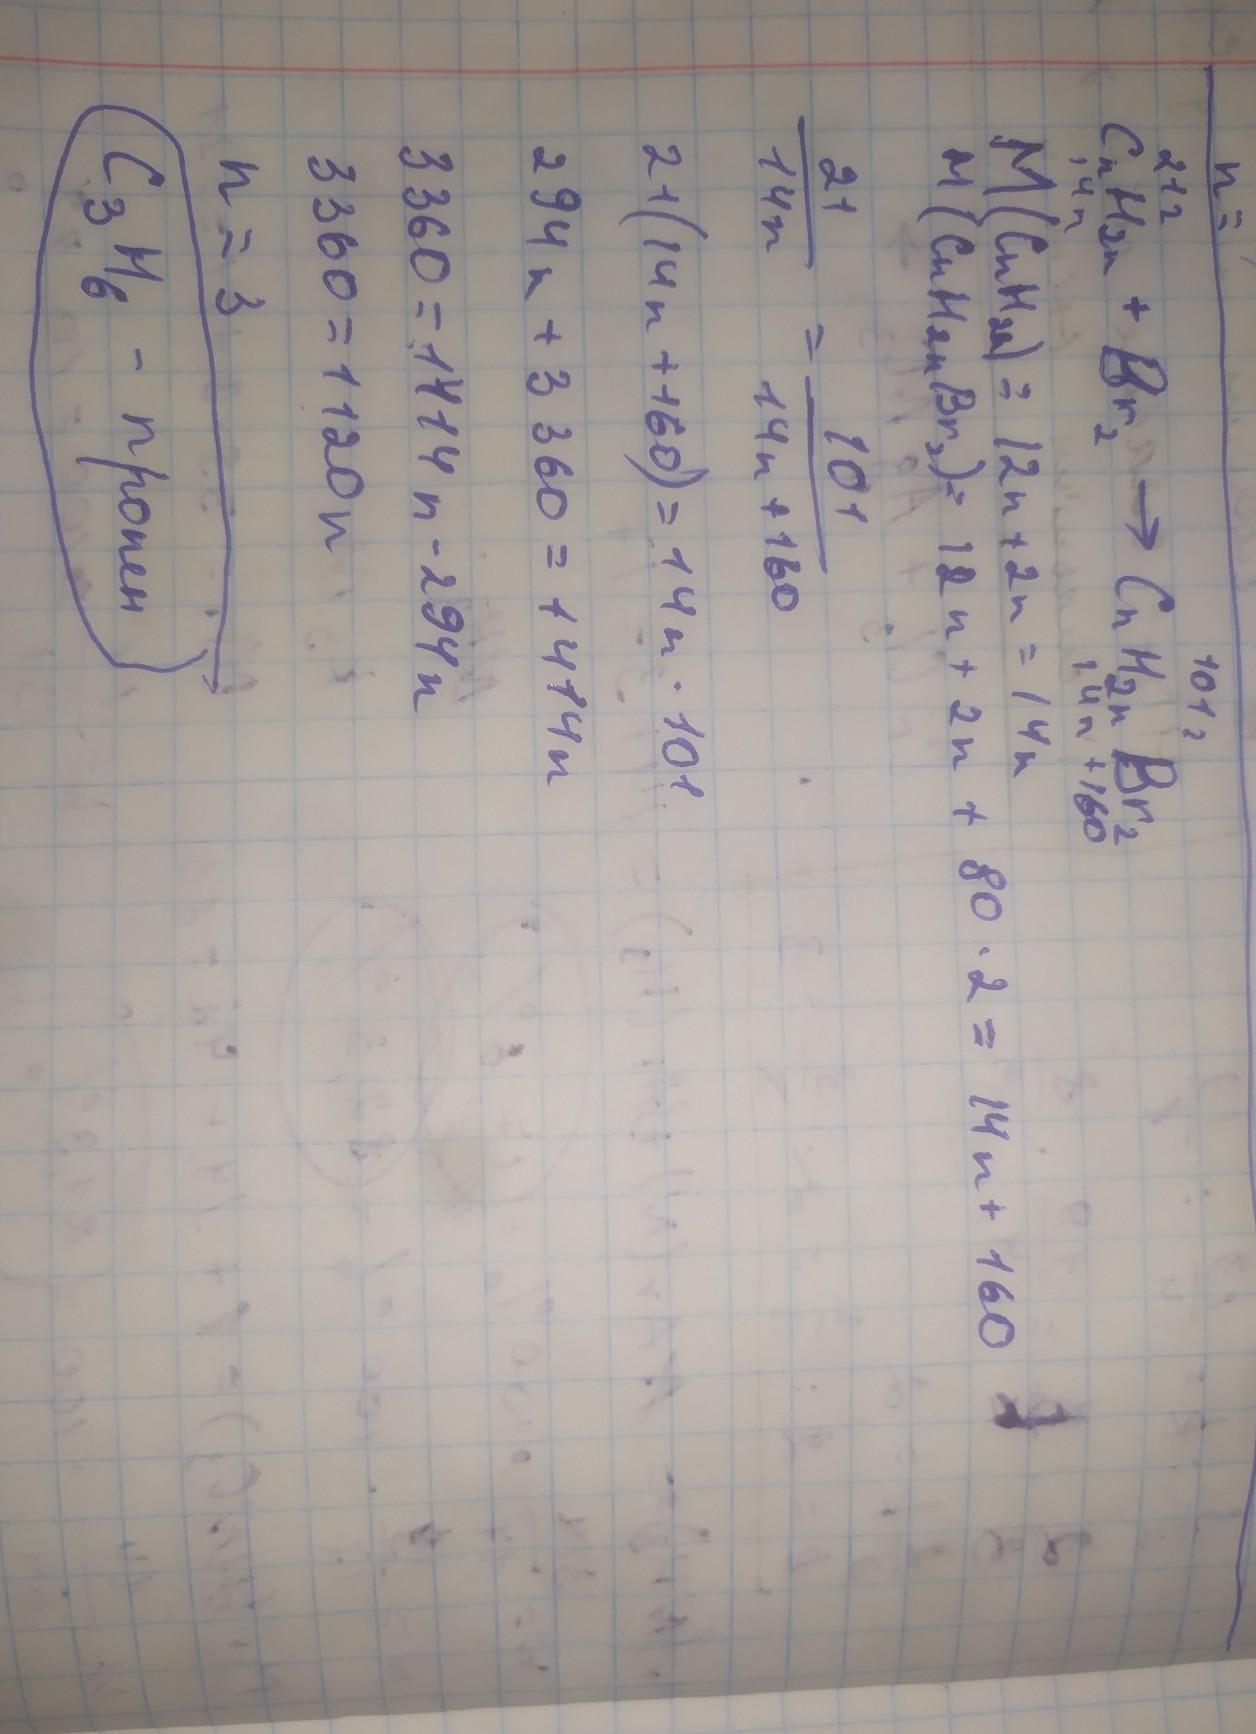 n =
21г 101г
CnH2n + Br2 → CnH2nBr2
14n 14n+160
M(CnH2n) = 12n+2n = 14n
M(CnH2nBr2) = 12n + 2n + 80·2 = 14n + 160
21 101
— = —
14n 14n+160
21(14n+160) = 14n·101
294n + 3360 = 1414n
3360 = 1414n - 294n
3360 = 1120n
n = 3
C3H6 - пропен